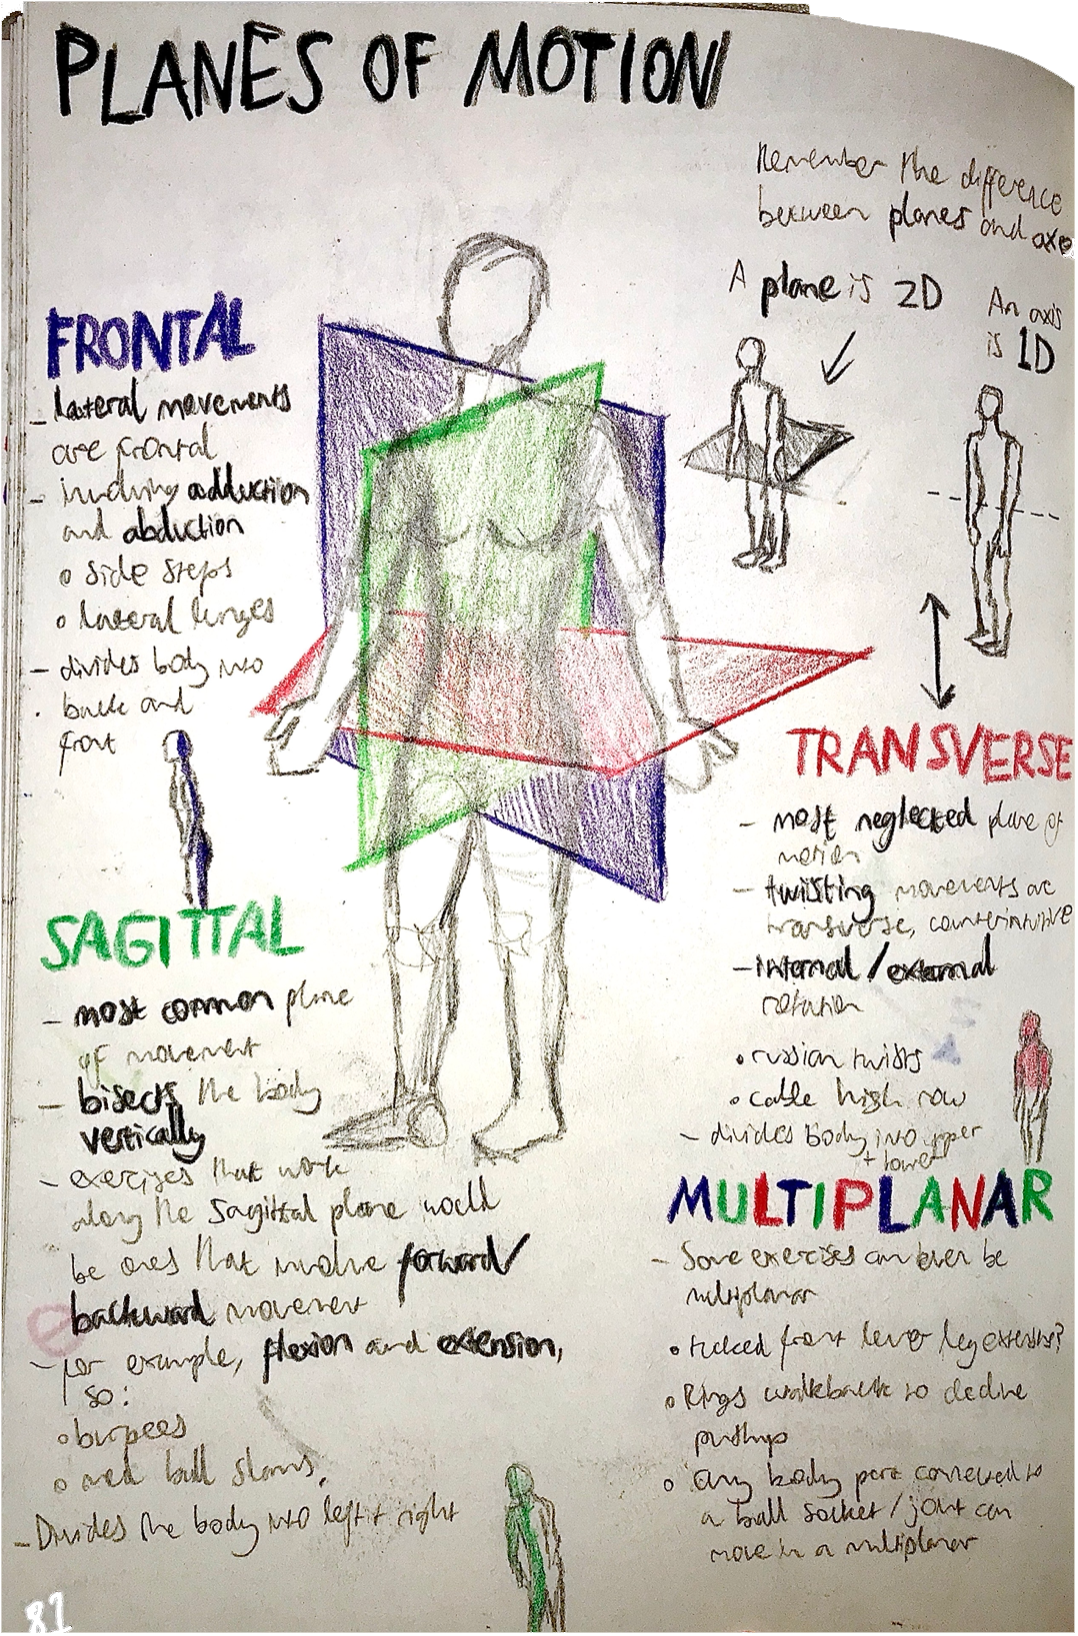 PLANES OF MOTION
Remember the difference
between planes and axe
A plane is 2D
An axis
is 1D
FRONTAL
- lateral movements
are frontal
- involving adduction
and abduction
o side steps
o lateral lunges
- divides body into
back and
front
SAGITTAL
- most common plane
of movement
- bisects the body
vertically
- exercises that work
along the sagittal plane would
be ones that involve forward/
backward movement
- for example, flexion and extension,
so:
o burpees
o med ball slams,
- Divides the body into left + right
TRANSVERSE
- most neglected plane of
motion
- twisting movements are
transverse, counterintuitive
- internal / external
rotation
• russian twists
• cable high row
- divides body into upper
+ lower
MULTIPLANAR
- Some exercises can even be
multiplanar
• tucked front lever leg extensions?
o Rings walkback to decline
pushups
o any body part connected to
a ball socket / joint can
move in a multiplanar
81